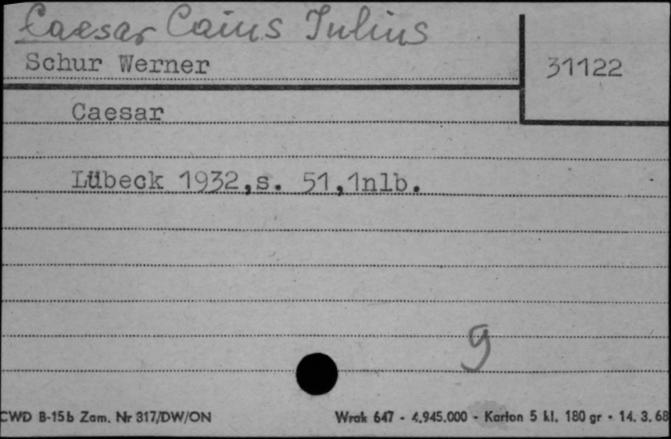 Caesar Caius Julius
Schur Werner
31122
Caesar
Lübeck 1932,s. 51,1nlb.
9
CWD B-15b Zam. Nr 317/DW/ON
Wrak 647 - 4.945.000 - Karton 5 kl. 180 gr - 14. 3. 68